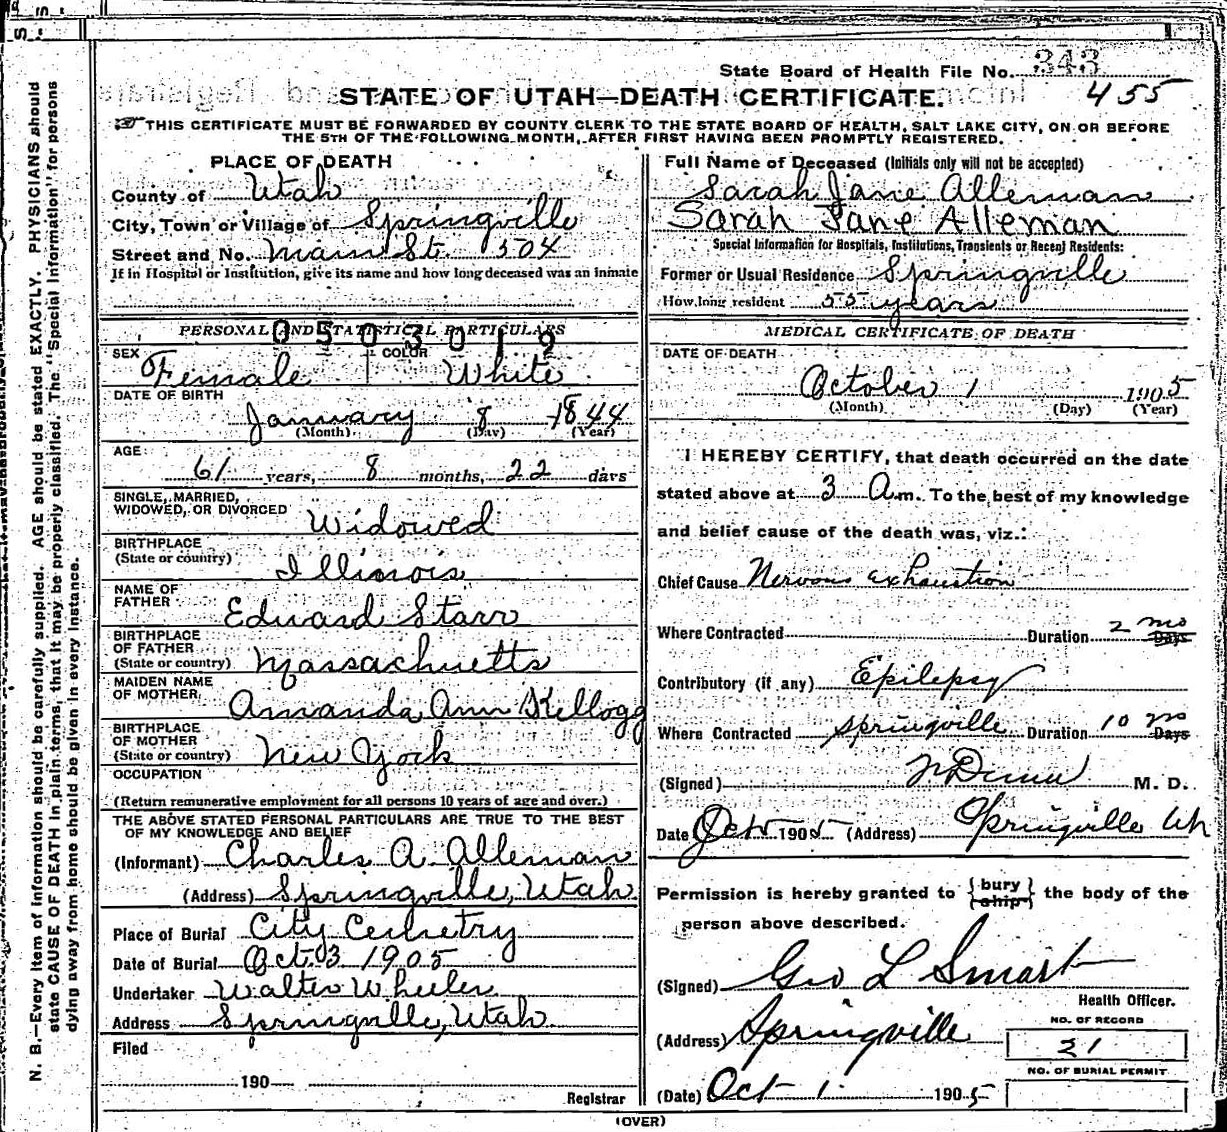 State Board of Health File No. 343
455
STATE OF UTAH—DEATH CERTIFICATE.
THIS CERTIFICATE MUST BE FORWARDED BY COUNTY CLERK TO THE STATE BOARD OF HEALTH, SALT LAKE CITY, ON OR BEFORE
THE 5TH OF THE FOLLOWING MONTH, AFTER FIRST HAVING BEEN PROMPTLY REGISTERED.
PLACE OF DEATH
County of Utah
City, Town or Village of Springville
Street and No. Main St. 504
If in Hospital or Institution, give its name and how long deceased was an inmate
PERSONAL AND STATISTICAL PARTICULARS
0503019
SEX Female COLOR White
DATE OF BIRTH
January 8 1844
(Month) (Day) (Year)
AGE
61 years, 8 months, 22 days
SINGLE, MARRIED,
WIDOWED, OR DIVORCED Widowed
BIRTHPLACE
(State or country) Illinois
NAME OF
FATHER Edward Starr
BIRTHPLACE
OF FATHER
(State or country) Massachuetts
MAIDEN NAME
OF MOTHER Amanda Ann Kellogg
BIRTHPLACE
OF MOTHER
(State or country) New York
OCCUPATION
(Return remunerative employment for all persons 10 years of age and over.)
THE ABOVE STATED PERSONAL PARTICULARS ARE TRUE TO THE BEST
OF MY KNOWLEDGE AND BELIEF
(Informant) Charles A. Alleman
(Address) Springville, Utah
Place of Burial City Cemetry
Date of Burial Oct. 3 1905
Undertaker Walter Wheeler
Address Springville, Utah
Filed
190
Registrar
Full Name of Deceased (Initials only will not be accepted)
Sarah Jane Alleman
Sarah Jane Alleman
Special Information for Hospitals, Institutions, Transients or Recent Residents:
Former or Usual Residence Springville
How long resident 55 years
MEDICAL CERTIFICATE OF DEATH
DATE OF DEATH
October 1 1905
(Month) (Day) (Year)
I HEREBY CERTIFY, that death occurred on the date
stated above at 3 A.m. To the best of my knowledge
and belief cause of the death was, viz.:
Chief Cause Nervous exhaustion
Where Contracted Duration 2 mo Days
Contributory (if any) Epilepsy
Where Contracted Springville Duration 10 mo Days
(Signed) M. D.
Date Oct 1905 (Address) Springville Ut
Permission is hereby granted to {bury ship} the body of the
person above described.
(Signed) Geo L Smart
Health Officer.
(Address) Springville
NO. OF RECORD
21
NO. OF BURIAL PERMIT
(Date) Oct 1 1905
(OVER)
N. B.—Every item of information should be carefully supplied. AGE should be stated EXACTLY. PHYSICIANS should
state CAUSE OF DEATH in plain terms, that it may be properly classified. The "Special Information" for persons
dying away from home should be given in every instance.